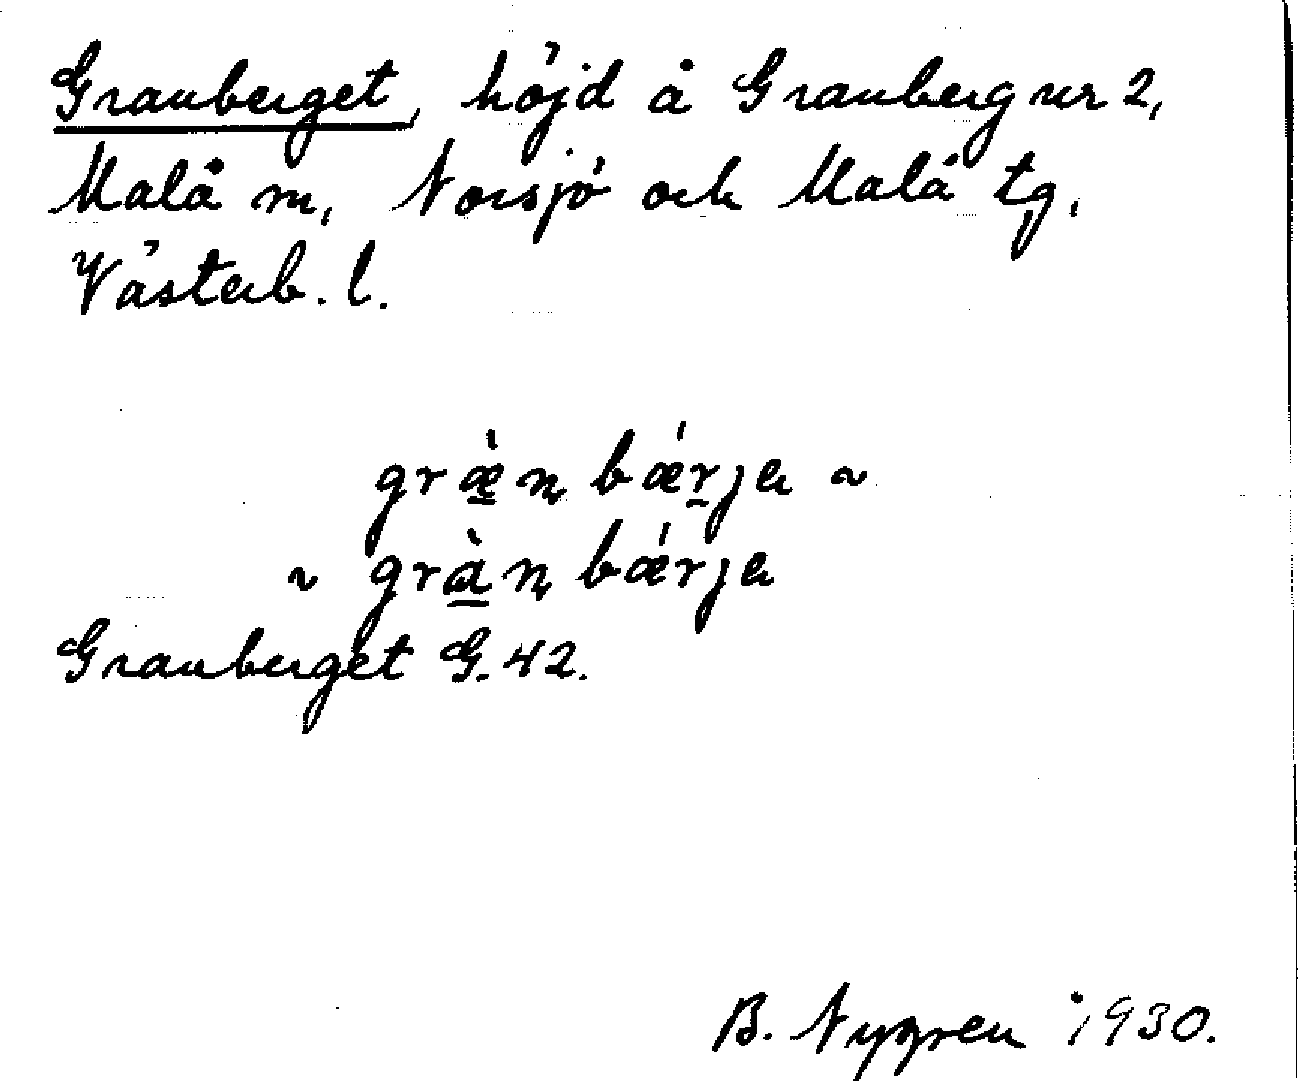 Granberget, höjd å Granberg nr 2,
Malå sn, Norsjö och Malå tg,
Västerb. l.
græ̀n bǽrja ~
~ gràn bǽrja
Granberget G. 42.
B. Nygren 1930.